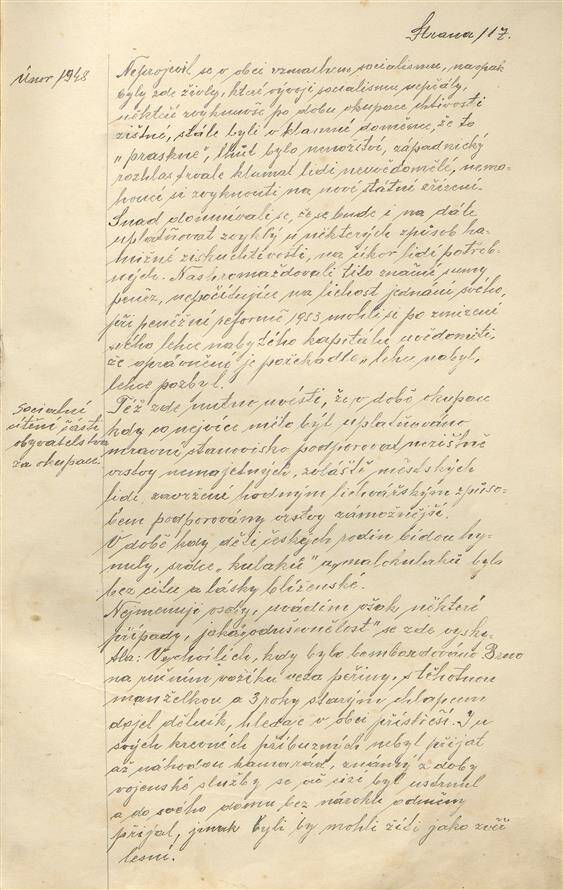 Strana 117.
Únor 1948
Neprojevil se v obci vzmachem socialismu, naopak
byly zde živly, které vývoji socialismu nepřály,
někteří zvyknuvše po dobu okupace chtivosti
zištné, stále byli v klamné doměnce, že to
„praskne", lhůt bylo množství, západnický
rozhlas trvale klamal lidi neuvědomělé, nemo-
houcí si zvyknouti na nové státní zřízení.
Snad domnívali se, že se bude i na dále
uplatňovat zvyklý u některých způsob ha-
nižné ziskuchtivosti, na úkor lidí potřeb-
ných. Nashromažďovali tito značné sumy
peněz, nepočítajíce na lichost jednání svého,
při peněžní reformě 1953 mohli si po zmizení
svého lehce nabytého kapitálu uvědomiti,
že oprávněné je pořekadlo „lehce nabyl,
lehce pozbyl.
Socialní
cítění části
obyvatelstva
za okupace.
Též zde nutno uvésti, že v době okupace
kdy co nejvíce mělo být uplatňováno
mravní stanovisko podporovat nezištně
vrstvy nemajetných, zvláště městských
lidí, zavržení hodným lichvářským způso-
bem podporovány vrstvy zámožnější.
V době kdy děti českých rodin bídou hy-
nuly, srdce „kulaků" a „malokulaků byla
bez citu a lásky blíženské.
Nejmenuje osoby, uvádím však některé
případy, jaká „oduševnělost" se zde vyske-
tla: Vychvílích, kdy bylo bombardováno Brno
na ručním vozíku veza peřiny, s těhotnou
manželkou a 3 roky starým chlapcem
dojel dělník, hledaje v obci přístřeší. I u
svých krevných příbuzných nebyl přijat
až náhodou kamarád, známý z doby
vojenské služby se ač cizí byl ustrnul
a do svého domu bez nároků odměny
přijal, jinak byli by mohli žíti jako zvěř
lesní.